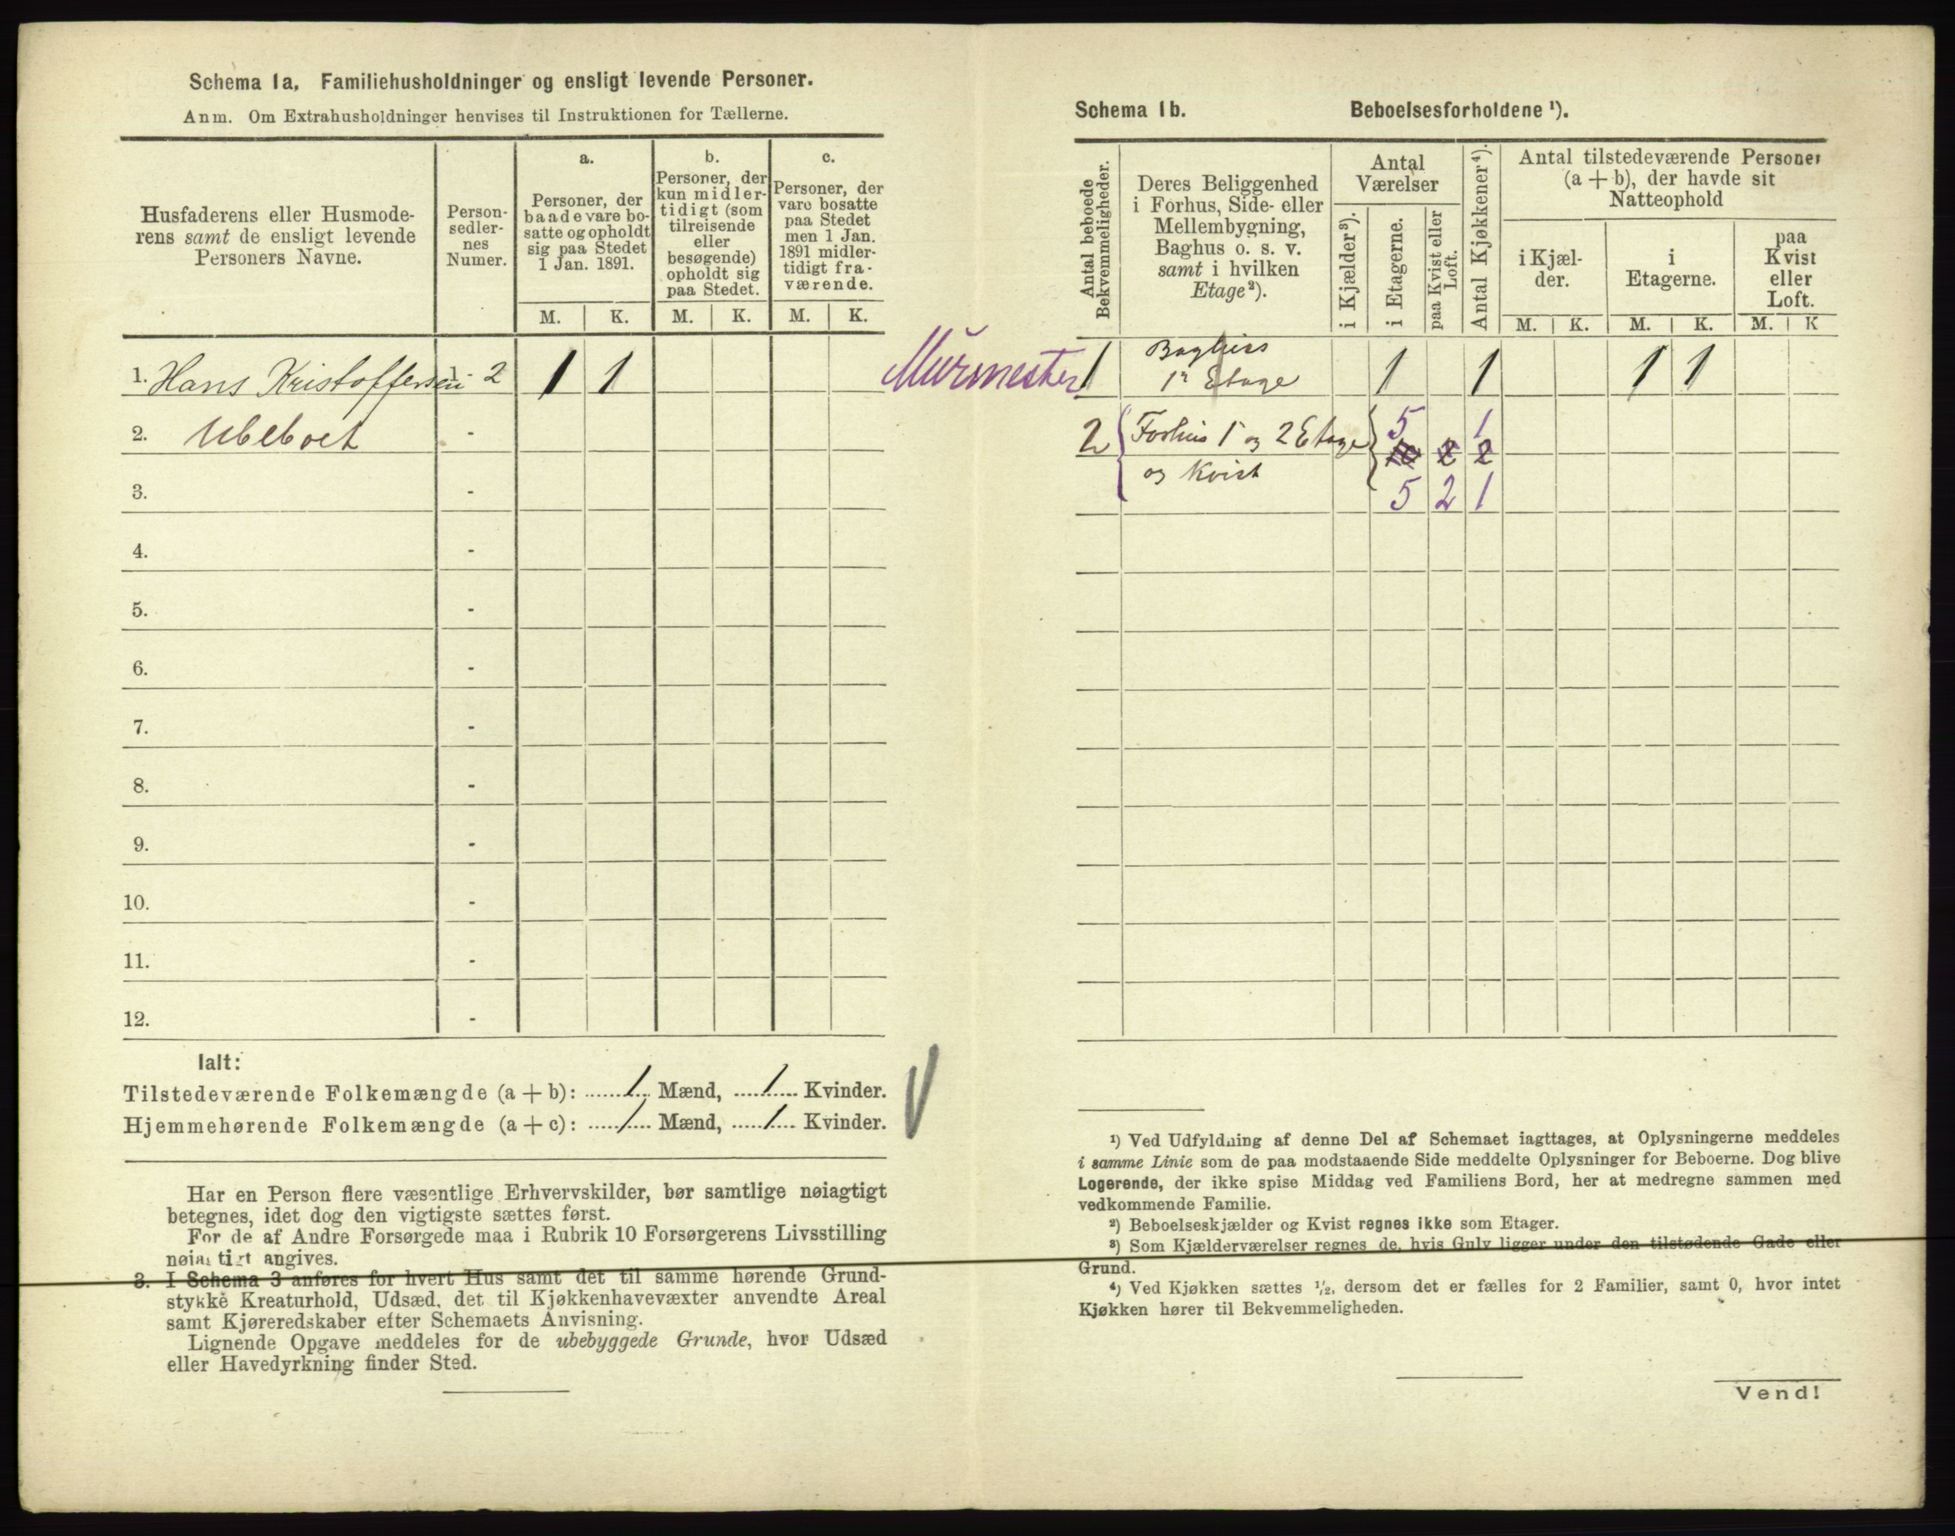 Schema 1a, Familiehusholdninger og ensligt levende Personer.
Anm. Om Extrahusholdninger henvises til Instruktionen for Tællerne.
Husfaderens eller Husmode-
rens samt de ensligt levende
Personers Navne.
Person-
sedler-
nes
Numer.
a.
Personer, der
baade vare bo-
satte og opholdt
sig paa Stedet
1 Jan. 1891.
b.
Personer, der
kun midler-
tidigt (som
tilreisende
eller
besøgende)
opholdt sig
paa Stedet.
c.
Personer, der
vare bosatte
paa Stedet
men 1 Jan.
1891 midler-
tidigt fra-
værende.
M. K. M. K. M. K.
1. Hans Kristoffersen 1 - 2 1 1
2. Ubeboet -
3. -
4. -
5. -
6. -
7. -
8. -
9. -
10. -
11. -
12. -
Ialt:
Tilstedeværende Folkemængde (a + b): 1 Mænd, 1 Kvinder.
Hjemmehørende Folkemængde (a + c): 1 Mænd, 1 Kvinder.
Har en Person flere væsentlige Erhvervskilder, bør samtlige nøiagtigt
betegnes, idet dog den vigtigste sættes først.
For de af Andre Forsørgede maa i Rubrik 10 Forsørgerens Livsstilling
nøiagtigt angives.
3. I Schema 3 anføres for hvert Hus samt det til samme hørende Grund-
stykke Kreaturhold, Udsæd, det til Kjøkkenhavevæxter anvendte Areal
samt Kjøreredskaber efter Schemaets Anvisning.
Lignende Opgave meddeles for de ubebyggede Grunde, hvor Udsæd
eller Havedyrkning finder Sted.
Schema 1b. Beboelsesforholdene ¹).
Antal beboede
Bekvemmeligheder.
Deres Beliggenhed
i Forhus, Side- eller
Mellembygning,
Baghus o. s. v.
samt i hvilken
Etage²).
Antal
Værelser
i Kjælder³).
i Etagerne.
paa Kvist eller
Loft.
Antal Kjøkkener⁴).
Antal tilstedeværende Personer
(a + b), der havde sit
Natteophold
i Kjæl-
der.
i
Etagerne.
paa
Kvist
eller
Loft.
M. K. M. K. M. K
Murmester 1 Baghus
1ᵉ Etage 1 1 1 1
2 Forhus 1 og 2 Etage 5 1
10 2 2
og Kvist
5 2 1
¹) Ved Udfyldning af denne Del af Schemaet iagttages, at Oplysningerne meddeles
i samme Linie som de paa modstaaende Side meddelte Oplysninger for Beboerne. Dog blive
Logerende, der ikke spise Middag ved Familiens Bord, her at medregne sammen med
vedkommende Familie.
²) Beboelseskjælder og Kvist regnes ikke som Etager.
³) Som Kjælderværelser regnes de, hvis Gulv ligger under den tilstødende Gade eller
Grund.
⁴) Ved Kjøkken sættes ½, dersom det er fælles for 2 Familier, samt 0, hvor intet
Kjøkken hører til Bekvemmeligheden.
Vend!